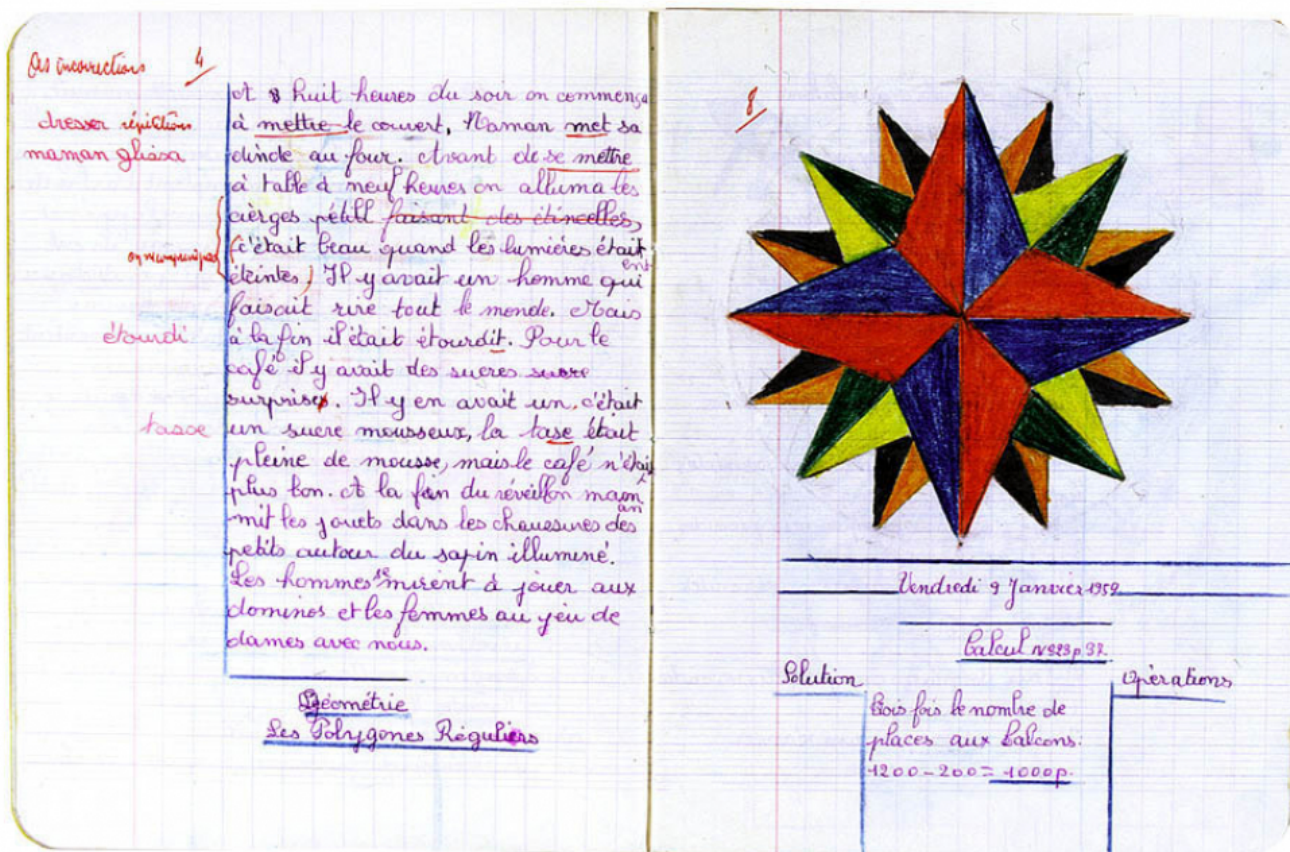 Des incorrections 4
dresser répétitions
maman glissa
on ne comprend pas
étourdi
tasse
A 8 huit heures du soir on commença
à mettre le couvert, Maman met sa
dinde au four. Avant de se mettre
à table à neuf heures on alluma les
cierges pétill faisant des étincelles,
(c'était beau quand les lumières étaient
éteintes) Il y avait un homme qui
faisait rire tout le monde. Mais
à la fin il était étourdit. Pour le
café il y avait des sucres sucre
surprises. Il y en avait un, c'était
un sucre mousseux, la tase était
pleine de mousse, mais le café n'était
plus bon. A la fin du réveillon maman
mit les jouets dans les chaussures des
petits autour du sapin illuminé.
Les hommes se mirent à jouer aux
dominos et les femmes au jeu de
dames avec nous.
Géométrie
Les Polygones Réguliers
8
Vendredi 9 Janvier 1959
Calcul N°323 p 97.
Solution
Opérations
Trois fois le nombre de
places aux balcons:
1200 - 200 = 1000 p.